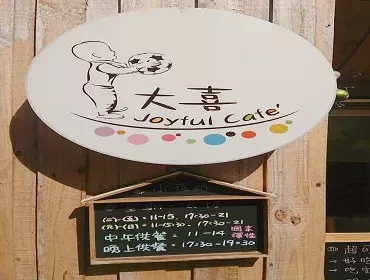 大喜
Joyful Café
(一)~(五)=11-15, 17:30-21
(六)(日)=11-15:30, 17:30-21
中午供餐 = 11-14
晚上供餐 = 17:30-19:30
週末
彈性